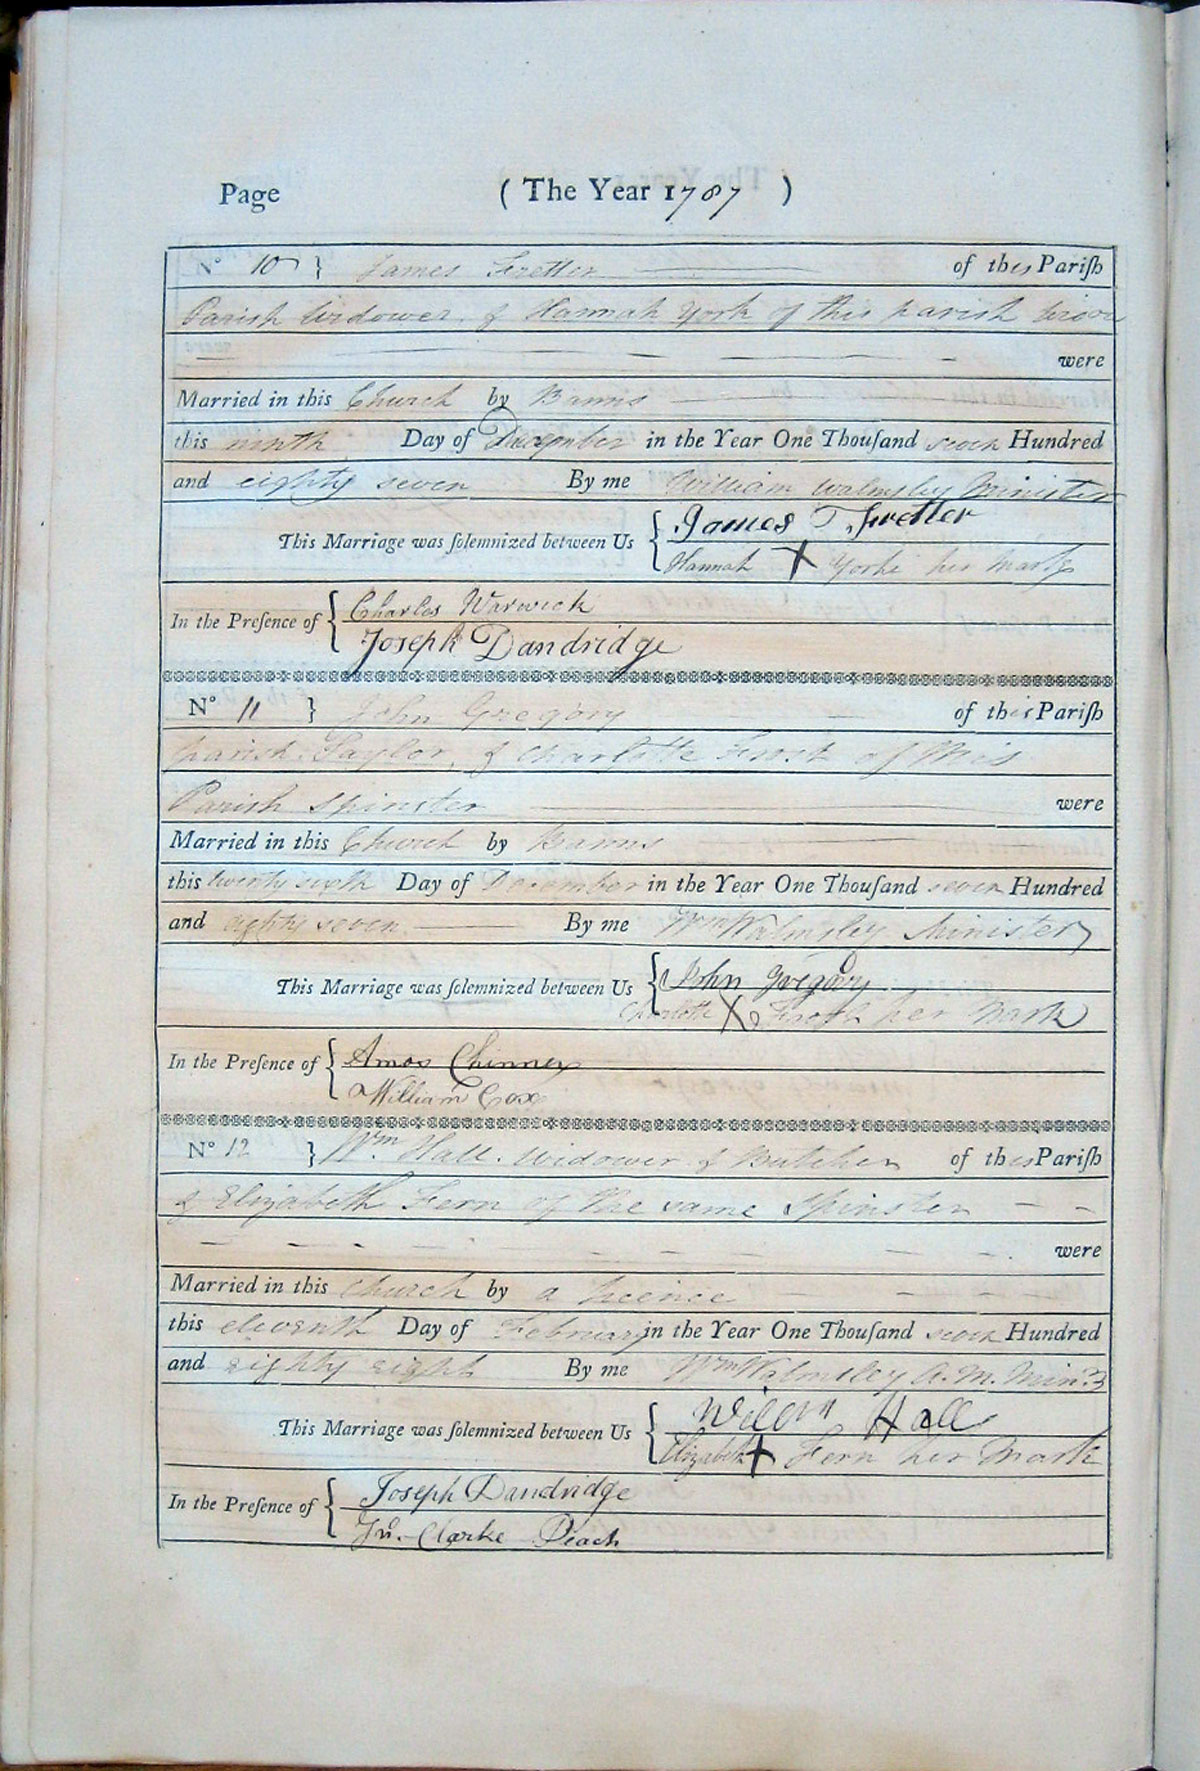 Page ( The Year 1787 )
No 10 } James Fretter of this Pariſh
Parish Widower & Hannah York of this parish
were
Married in this Church by Banns
this ninth Day of December in the Year One Thouſand seven Hundred
and eighty seven By me William Walmsley Minister
This Marriage was ſolemnized between Us { James Fretter
Hannah X Yorke her Mark
In the Preſence of { Charles Warwick
Joseph Dandridge
No 11 } John Gregory of this Pariſh
parish Taylor, & Charlotte Frost of this
Parish Spinster were
Married in this Church by Banns
this twenty sixth Day of December in the Year One Thouſand seven Hundred
and eighty seven By me Wm Walmsley Minister
This Marriage was ſolemnized between Us { John Gregory
Charlotte X Frost her Mark
In the Preſence of { Amos Chinney
William Cox
No 12 } Wm Hall. Widower & Butcher of this Pariſh
& Elizabeth Fern of the same Spinster
were
Married in this church by a Licence
this eleventh Day of February in the Year One Thouſand seven Hundred
and eighty eight By me Wm Walmsley A.M. Minr
This Marriage was ſolemnized between Us { Willm Hall
Elizabeth X Fern her Mark
In the Preſence of { Joseph Dandridge
Jno. Clarke Peach